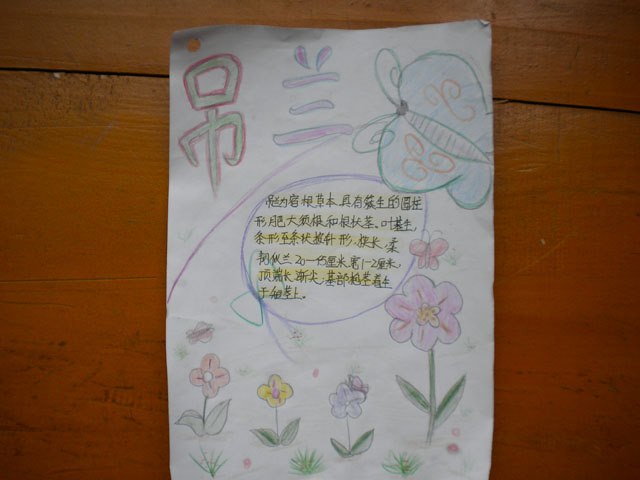 吊兰
它为宿根草本,具有簇生的圆柱
形肥大须根和根状茎。叶基生,
条形至条状披针形,狭长,柔
韧似兰20—45厘米,宽1-2厘米,
顶端长、渐尖,基部抱茎着生
于细茎上。